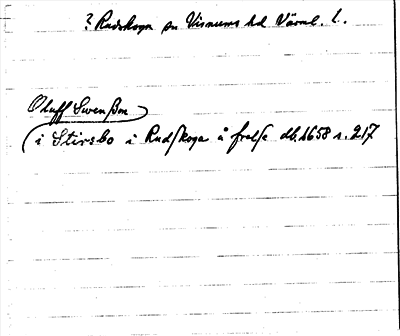 ? Rudskoga sn Visnums hd Värml. l.
Oluff Swenßon
i Stirsbo i Rudskoga å frelse db. 1658 s. 217